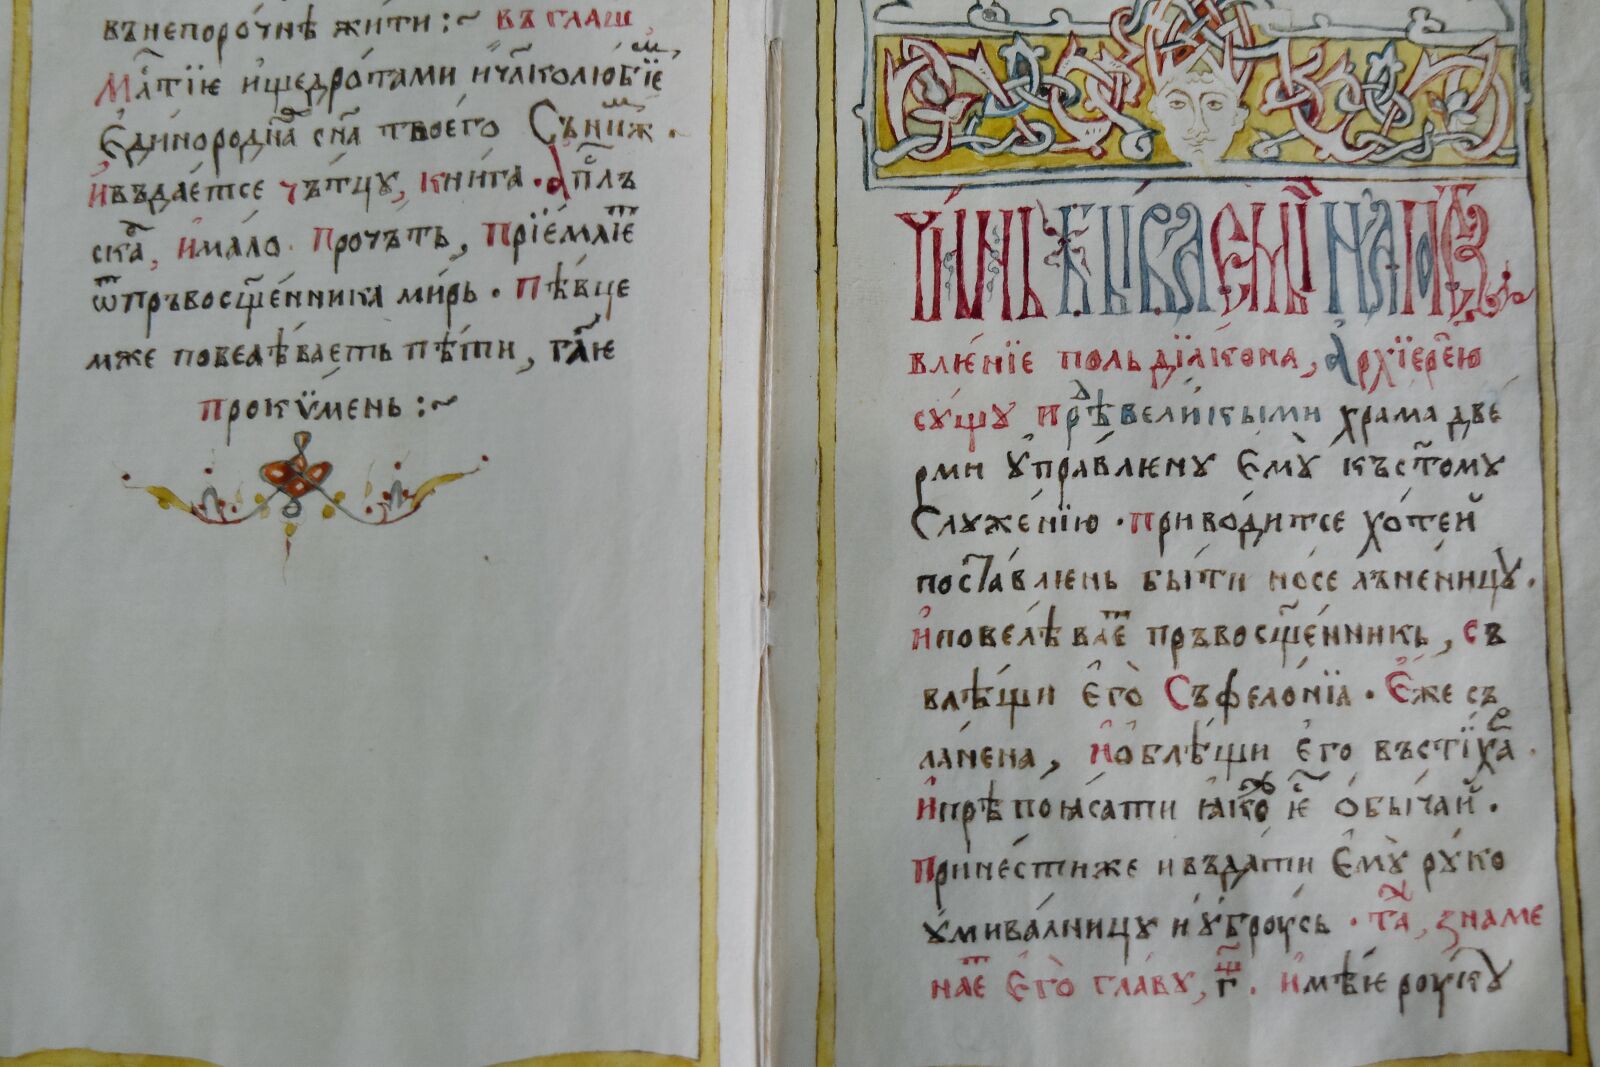 въ непоро́чнѣ жи́ти :~ въ гла́ш
Мл҃тїю и҆ щедро́тами и҆ чл҃колю́бїе
Єди́нородна сн҃а твоего̀ Съ ни́мж .
И҆ въдае́тсе чътцу, кни́га . а҆пл҃ъ
ска, и҆ма́ло . Прочъ́ть, Прїе́млїе
ѿ пръвосщ҃е́нника ми́рь . Пѣ́вце
мже повелѣ́ваеть пѣ́ти, гл҃ю
Проки́мень :~
Чи́нь бываємы́й на поста
вле́нїе польдїа́кона, А҆рхїере́ю
су́щу прⷣѣ вели́кыми храма две́
рми ѹ҆пра́влѥну є҆мꙋ̀ къ ст҃ому
Слꙋже́нїю . Приво́дитсе хо́тей
поста́влѥнь бы́ти но́се лъне́ницꙋ .
И҆ повелѣ́ваеⷮ пръвосщ҃е́нникь, съ
влѣ́щи є҆го̀ Съ фело́нїа . Є҆же съ
ла́нена, и҆ ѻ҆блѣ́щи є҆го въ стїха́ .
И҆ прѣпоꙗ́сати ꙗ҆коⷤ є҆с҃ ѻ҆бы́чай .
Прине́сти же и въда́ти є҆мꙋ̀ рꙋ́ко
ѹ҆мива́лницꙋ и҆ ѹ҆́броусь . таⷯ, зна́ме
наеⷮ є҆го̀ гла́вꙋ, г҃ⷳ . И҆мѣ́ѥ роу́кꙋ